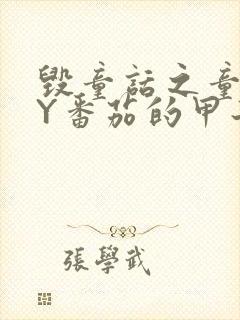 毀童話之童
Y番茄的甲
張學武